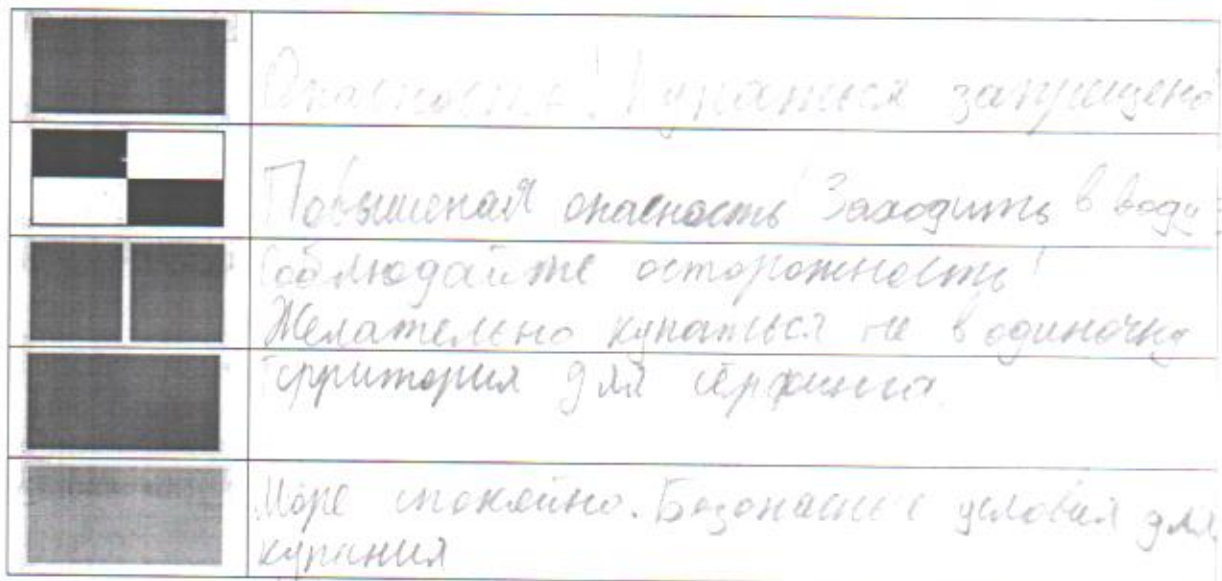 Опасность! Купаться запрещено
Повышеная опасность! Заходить в воду
Соблюдайте осторожность!
Желательно купаться не в одиночку
Территория для сёрфинга
Море спокойно. Безопасные условия для
купания